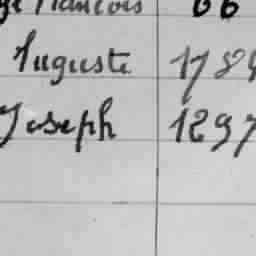 François 66
Auguste 1784
Joseph 1297